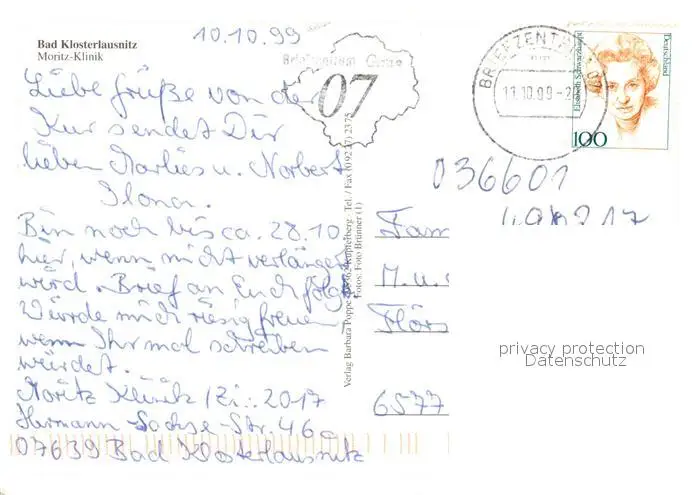 10.10.99
Bad Klosterlausnitz
Moritz-Klinik
Liebe Grüße von der
Kur sendet Dir
lieben Marlies u. Norbert
Ilona.
Bin noch bis ca. 28.10
hier, wenn nicht verlängert
wird. Brief an Euch folgt.
Würde mich riesig freuen,
wenn Ihr mal schreiben
würdet.
Moritz Klinik / Zi.: 2017
Hermann-Sachse-Str. 46
07639 Bad Klosterlausnitz
Briefzentrum
07
Verlag Barbara Poppe Kupferberg Tel. / Fax (092 27) 2375
Fotos: Foto Brünner (1)
BRIEFZENTRUM 07
11.10.99-2
Deutschland
Elisabeth Schwarzhaupt
100
036601
Fam
M. u.
Flörs
6577
privacy protection
Datenschutz